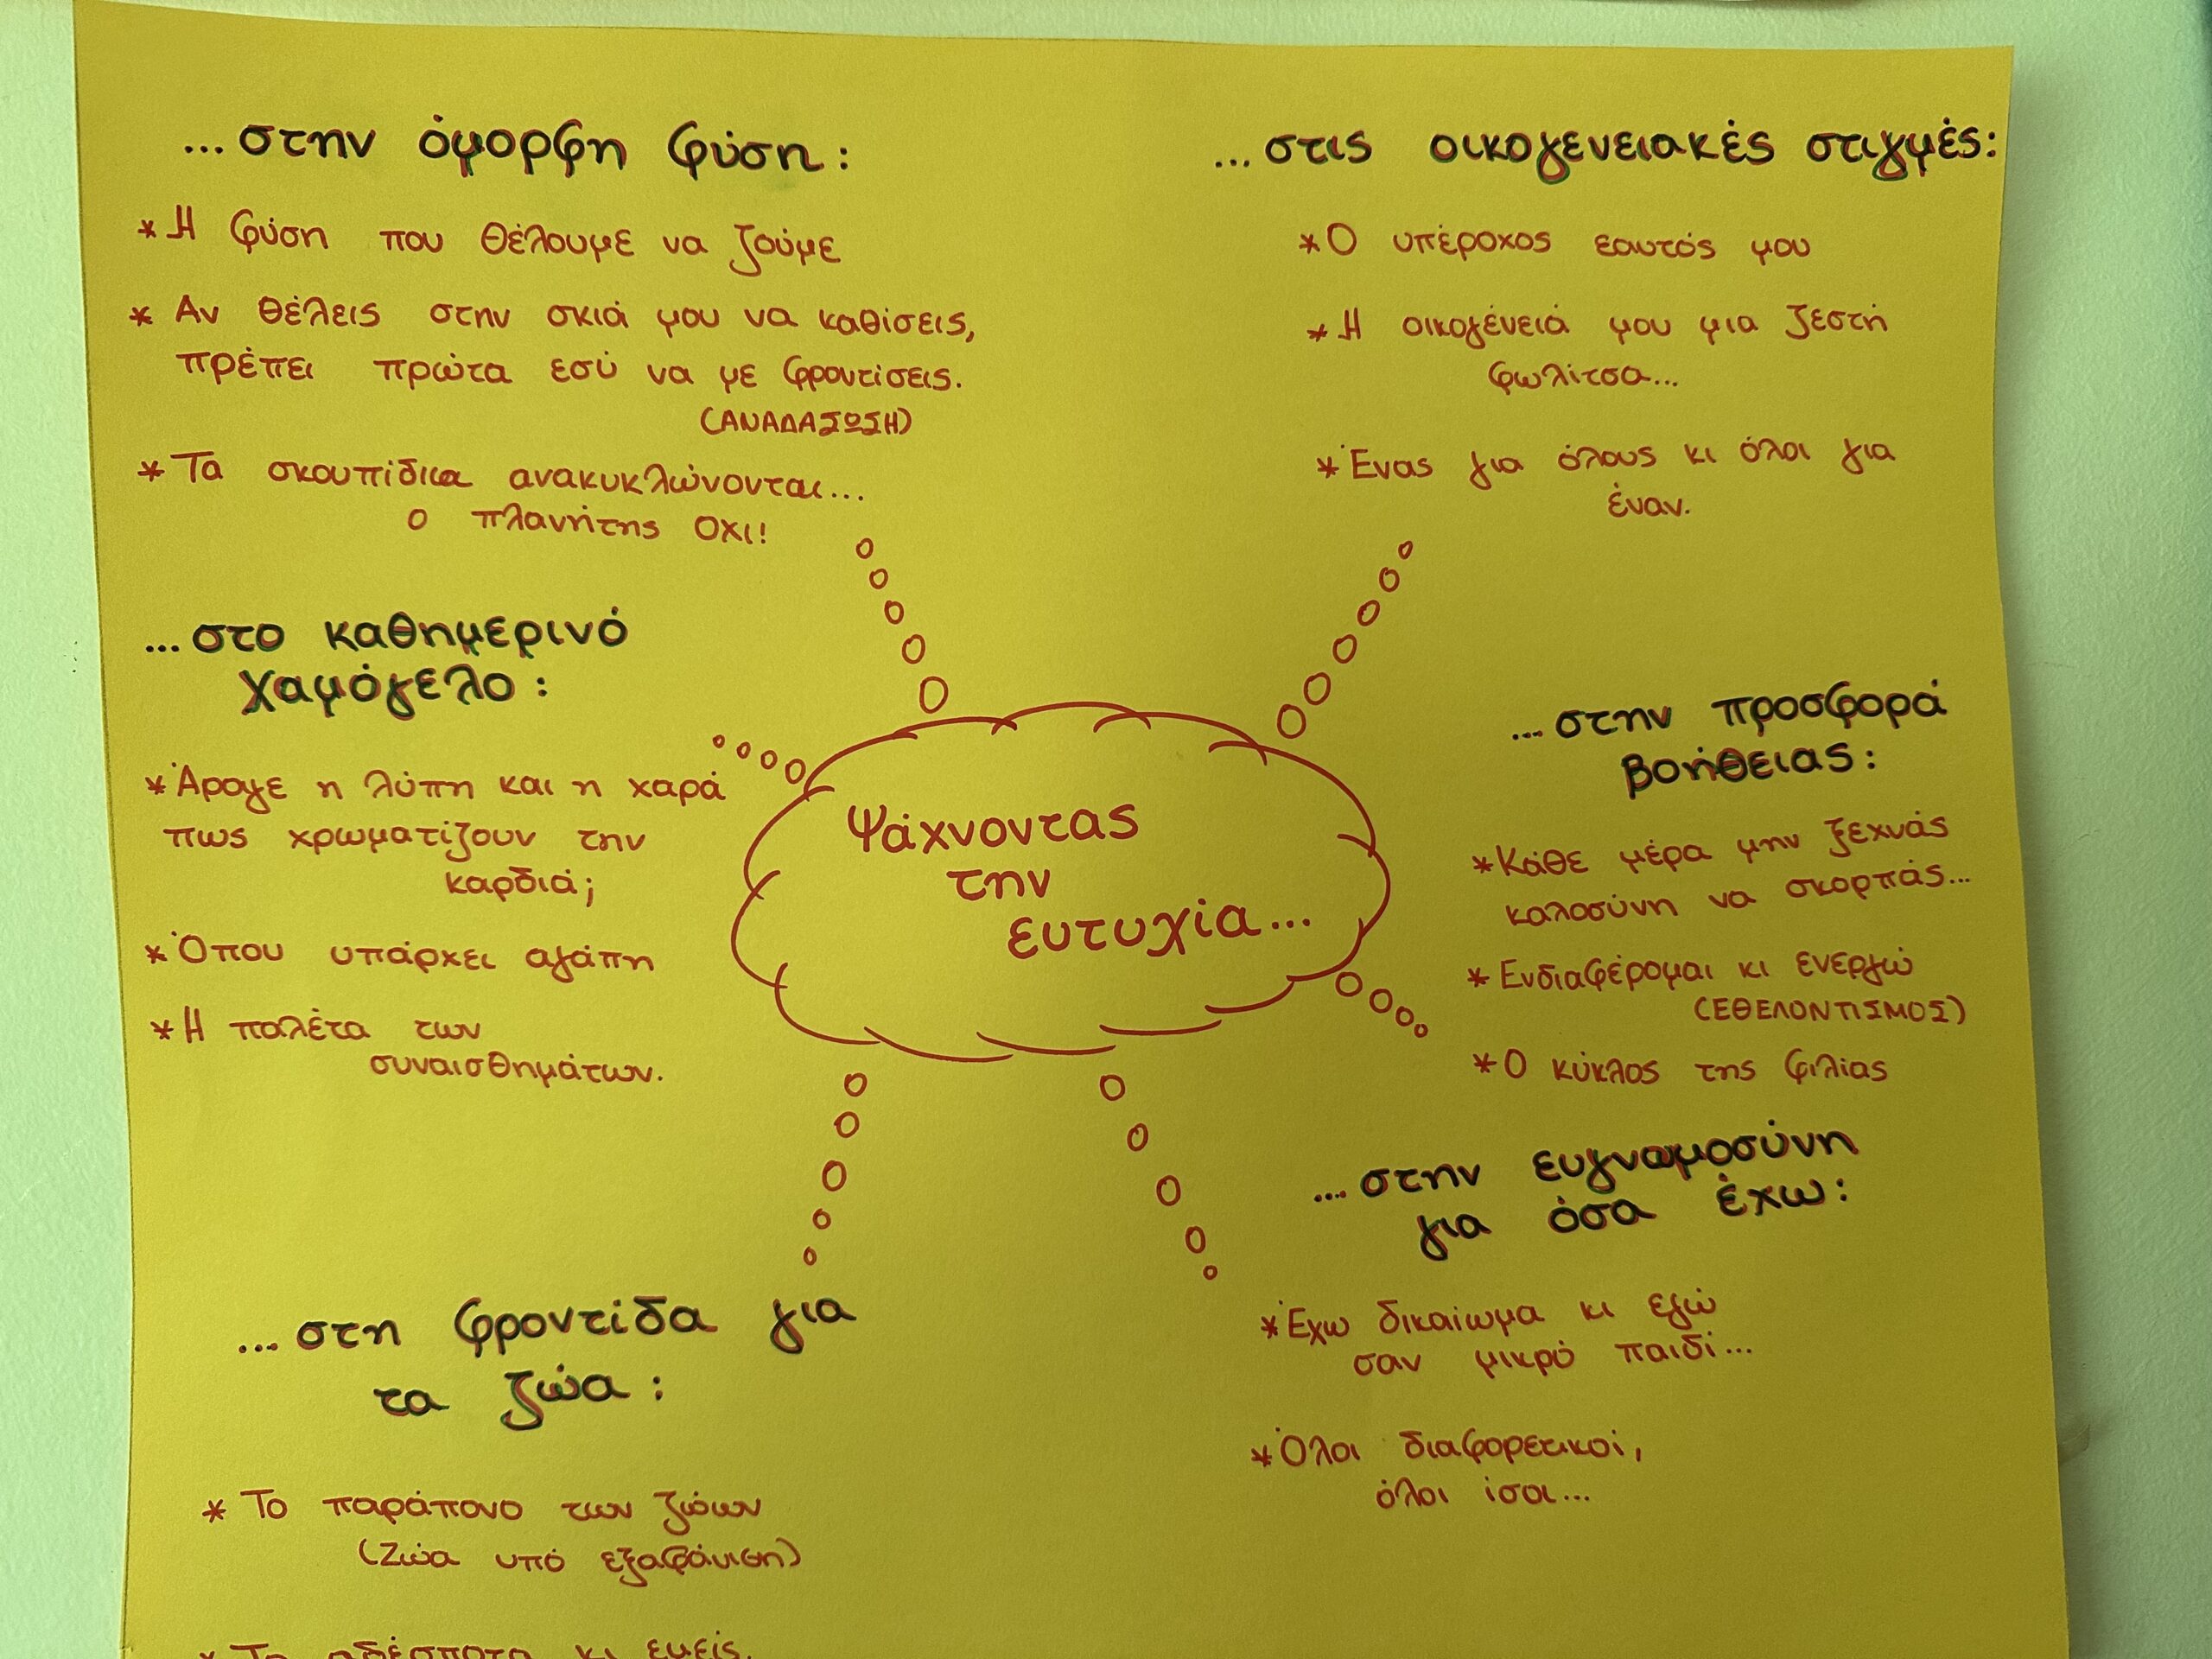 ...στην όμορφη φύση:
*Η φύση που θέλουμε να ζούμε
* Αν θέλεις στην σκιά μου να καθίσεις,
πρέπει πρώτα εσύ να με φροντίσεις.
(ΑΝΑΔΑΣΩΣΗ)
* Τα σκουπίδια ανακυκλώνονται...
ο πλανήτης ΟΧΙ!
...στο καθημερινό
χαμόγελο:
*Άραγε η λύπη και η χαρά
πως χρωματίζουν την
καρδιά;
*Όπου υπάρχει αγάπη
*Η παλέτα των
συναισθημάτων.
...στη φροντίδα για
τα ζώα:
* Το παράπονο των ζώων
(Ζώα υπό εξαφάνιση)
* Τα αδέσποτα κι εμείς.
Ψάχνοντας
την
ευτυχία...
...στις οικογενειακές στιγμές:
*Ο υπέροχος εαυτός μου
*Η οικογένειά μου μια ζεστή
φωλίτσα...
*Ένας για όλους κι όλοι για
έναν.
...στην προσφορά
βοήθειας:
*Κάθε μέρα μην ξεχνάς
καλοσύνη να σκορπάς...
*Ενδιαφέρομαι κι ενεργώ
(ΕΘΕΛΟΝΤΙΣΜΟΣ)
*Ο κύκλος της φιλίας
...στην ευγνωμοσύνη
για όσα έχω:
*Έχω δικαίωμα κι εγώ
σαν μικρό παιδί...
*Όλοι διαφορετικοί,
όλοι ίσοι...